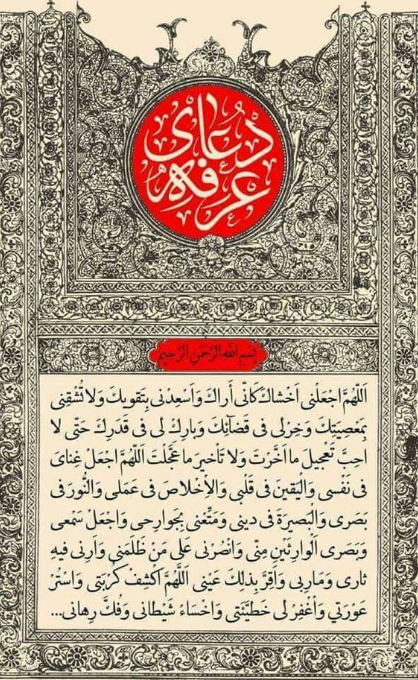 دعای
عرفه
بسم الله الرحمن الرحیم
اَللّهُمَّ اجْعَلْنی اَخْشاکَ کَاُنّی اَراکَ وَاَسْعِدْنی بِتَقویکَ وَلا تُشْقِنی
بِمَعْصِیَتِکَ وَخِرْلی فی قَضآئِکَ وَبارِکْ لی فی قَدَرِکَ حَتّی لا
احِبَّ تَعْجیلَ ما اَخَّرْتَ وَلا تَاْخیرَ ما عَجَّلْتَ اَللّهُمَّ اجْعَلْ غِنایَ
فی نَفْسی وَالْیَقینَ فی قَلْبی وَالْاِخْلاصَ فی عَمَلی وَالنُّورَ فی
بَصَری وَالْبَصیرَةَ فی دینی وَمَتِّعْنی بِجَوارِحی وَاجْعَلْ سَمْعی
وَبَصَری اَلْوارِثَیْنِ مِنّی وَانْصُرْنی عَلی مَنْ ظَلَمَنی وَاَرِنی فیهِ
ثاری وَمَارِبی وَاَقِرَّ بِذلِکَ عَیْنی اَللَّهُمَّ اکْشِفْ کُرْبَتی وَاسْتُرْ
عَوْرَتی وَاْغْفِرْ لی خَطیَّئَتی وَاخْسَاءْ شَیْطانی وَفُکَّ رِهانی...